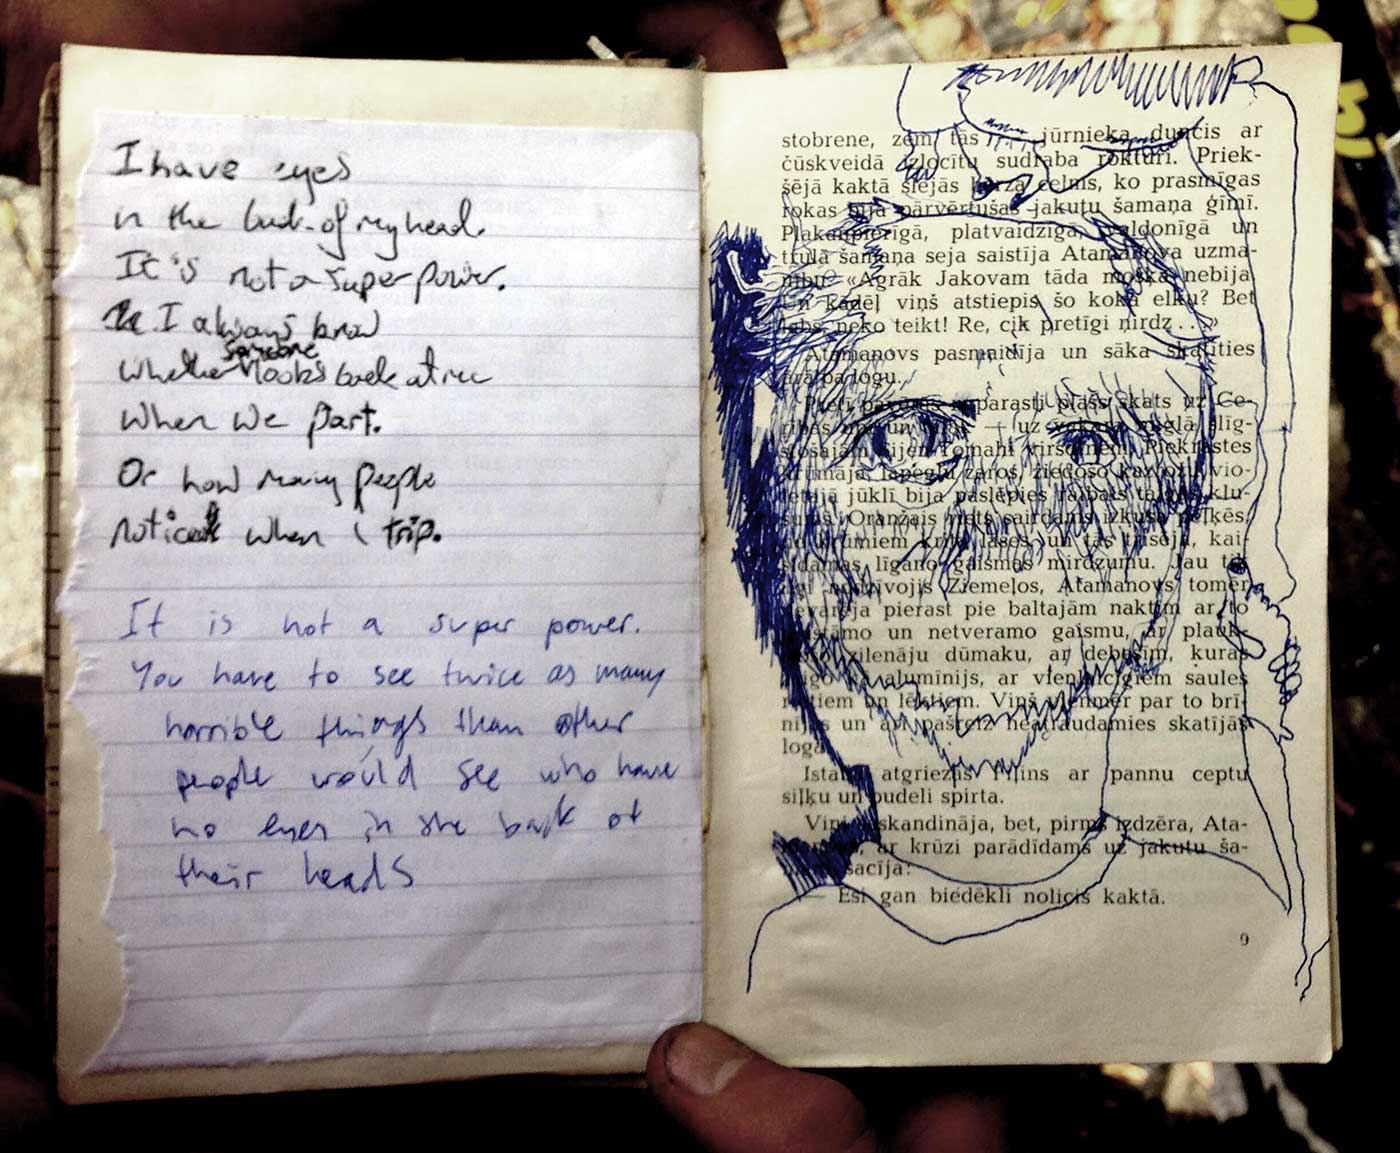 I have eyes
in the back of my head.
It is not a super power.
I always know
someone
whether looks back at me
when we part.
Or how many people
notice when I trip.
It is not a super power.
You have to see twice as many
horrible things than other
people would see who have
no eyes in the back of
their heads
stobrene, zem tās jūrnieka duncis ar
čūskveidā izlocītu sudraba rokturi. Priek-
šējā kaktā slējās bērza celms, ko prasmīgas
rokas bija pārvērtušas jakutu šamaņa ģīmī.
Plakanpierīgā, platvaidzīgā, valdonīgā un
trulā šamaņa seja saistīja Atamanova uzma-
nību. «Agrāk Jakovam tāda moška nebija.
Un kādēļ viņš atstiepis šo koka elku? Bet
labs, neko teikt! Re, cik pretīgi ņirdz . . .»
Atamanovs pasmaidīja un sāka skatīties
ārā pa logu.
Pretī pavērās neparasti plašs skats uz Ce-
rības un — uz vakara miglā slīg-
stošajām virsotnēm. Piekrastes
krūmājā, lapegļu zaros, ziedošo vio-
letajā jūklī bija paslēpies raibais taigas klu-
sums. Oranžais riets sairdams izkusa peļķēs,
no krūmiem krita lāses, un tās trīsēja, kai-
sīdamas līgano gaismas mirdzumu. Jau tik
ilgi nodzīvojis Ziemeļos, Atamanovs tomēr
nevarēja pierast pie baltajām naktīm ar to
gaistamo un netveramo gaismu, ar plauk-
stošo zilenāju dūmaku, ar debesīm, kuras
kā alumīnijs, ar vienlaicīgiem saules
rietiem un lēktiem. Viņš vienmēr par to brī-
nījās un arī pašreiz neatraudamies skatījās
logā.
Istabā atgriezās ar pannu ceptu
siļķu un pudeli spirta.
Viņi saskandināja, bet, pirms izdzēra, Ata-
manovs, ar krūzi parādīdams uz jakutu ša-
sacīja:
— Esi gan biedēkli nolicis kaktā.
9